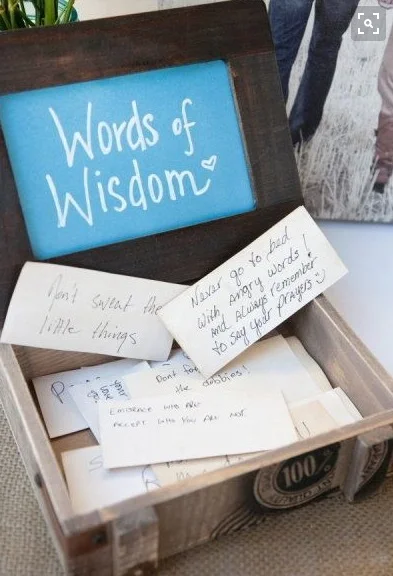 Words of
Wisdom
Don't sweat the
little things
Never go to bed
with angry words!
And always remember
to say your prayers
Dont for
the dobbies!
your
love
EMBRACE WHO ARE
ACCEPT WHO YOU ARE NOT
100